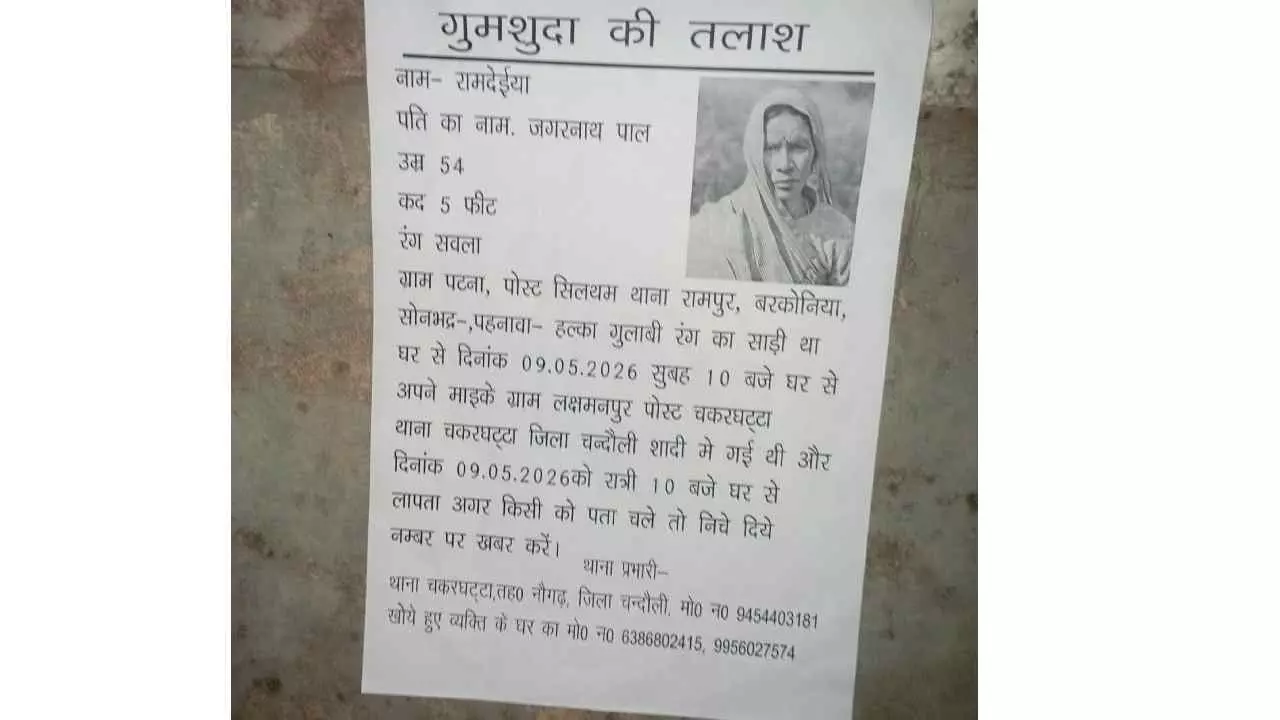 गुमशुदा की तलाश
नाम- रामदेईया
पति का नाम. जगरनाथ पाल
उम्र 54
कद 5 फीट
रंग सवला
ग्राम पटना, पोस्ट सिलथम थाना रामपुर, बरकोनिया,
सोनभद्र-,पहनावा- हल्का गुलाबी रंग का साड़ी था
घर से दिनांक 09.05.2026 सुबह 10 बजे घर से
अपने माइके ग्राम लक्षमनपुर पोस्ट चकरघट्टा
थाना चकरघट्टा जिला चन्दौली शादी मे गई थी और
दिनांक 09.05.2026को रात्री 10 बजे घर से
लापता अगर किसी को पता चले तो निचे दिये
नम्बर पर खबर करें।
थाना प्रभारी-
थाना चकरघट्टा,तह0 नौगढ़, जिला चन्दौली, मो0 न0 9454403181
खोये हुए व्यक्ति के घर का मो0 न0 6386802415, 9956027574